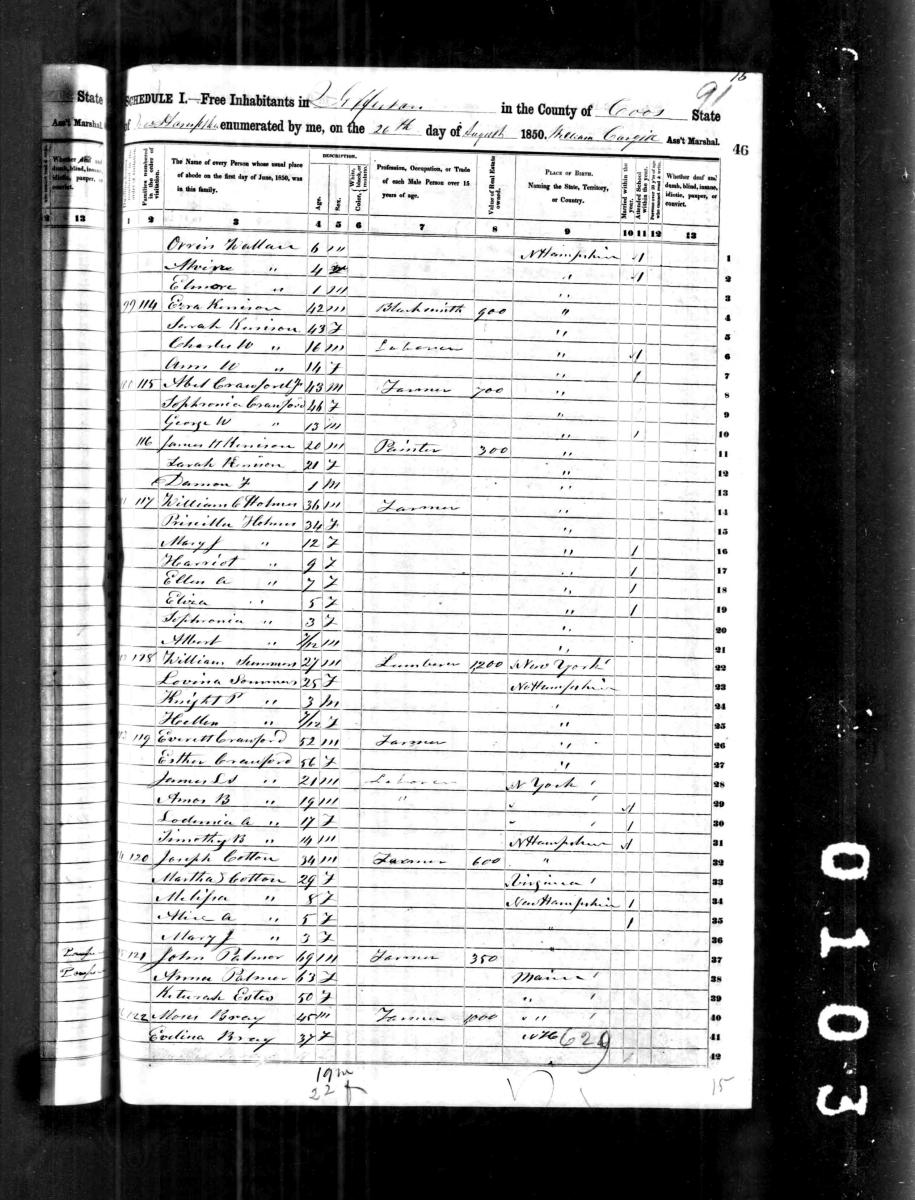 16
91
State SCHEDULE I.—Free Inhabitants in Jefferson in the County of Coos State
Ass't Marshal. of New Hampshire enumerated by me, on the 20th day of August 1850. William Cargill Ass't Marshal.
46
DESCRIPTION.
Whether deaf and dumb, blind, insane, idiotic, pauper, or convict.
Families numbered in the order of visitation.
The Name of every Person whose usual place of abode on the first day of June, 1850, was in this family.
Age. Sex. Color, White, black, or mulatto.
Profession, Occupation, or Trade of each Male Person over 15 years of age.
Value of Real Estate owned.
PLACE OF BIRTH. Naming the State, Territory, or Country.
Married within the year.
Attended School within the year.
Whether deaf and dumb, blind, insane, idiotic, pauper, or convict.
13 1 2 3 4 5 6 7 8 9 10 11 12 13
Orrin Wallace 6 m N Hampshire 1 1
" 4 m " 1 2
Elmore " 1 m " 3
99 114 Ezra Kenison 42 m Blacksmith 900 " 4
Sarah Kenison 43 f " 5
Charles W " 16 m Laborer " 1 6
Ann W " 14 f " 1 7
115 Abel Crawford Jr 43 m Farmer 700 " 8
Sophronia Crawford 46 f " 9
George W " 13 m " 1 10
116 James H Kenison 20 m Painter 300 " 11
Sarah Kenison 21 f " 12
Damon F 1 m " 13
117 William C Holmes 36 m Farmer " 14
Priscilla Holmes 34 f " 15
Mary J " 12 f " 1 16
Harriot " 9 f " 1 17
Ellen A " 7 f " 1 18
Elvza " 5 f " 1 19
Sophronia " 3 f " 20
Albert " /12 m " 21
118 William Summers 27 m Lumberer 1,200 New York 22
Lovina Sommers 25 f N Hampshire 23
Knight P " 3 m " 24
Hellen " /12 f " 25
119 Everett Crawford 52 m Farmer " 26
Esther Crawford 56 f " 27
James " 21 m Laborer N York 28
Amos B " 19 m " " 1 29
Lodemia A " 17 f " 1 30
Timothy B " 14 m N Hampshire 1 31
120 Joseph Cotton 34 m Farmer 600 " 32
Martha Cotton 29 f Virginia 33
Melissa " 8 f New Hampshire 1 34
Alice A " 5 f " 1 35
Mary J " 3 f " 36
121 John Palmer 69 m Farmer 350 " 37
Anna Palmer 63 f Maine 38
Keturah Estes 50 f " 39
122 Moses Bray 45 m Farmer 1000 " 40
Evelina Bray 37 f N H 41
629
42
19 m
22 f
15
0103